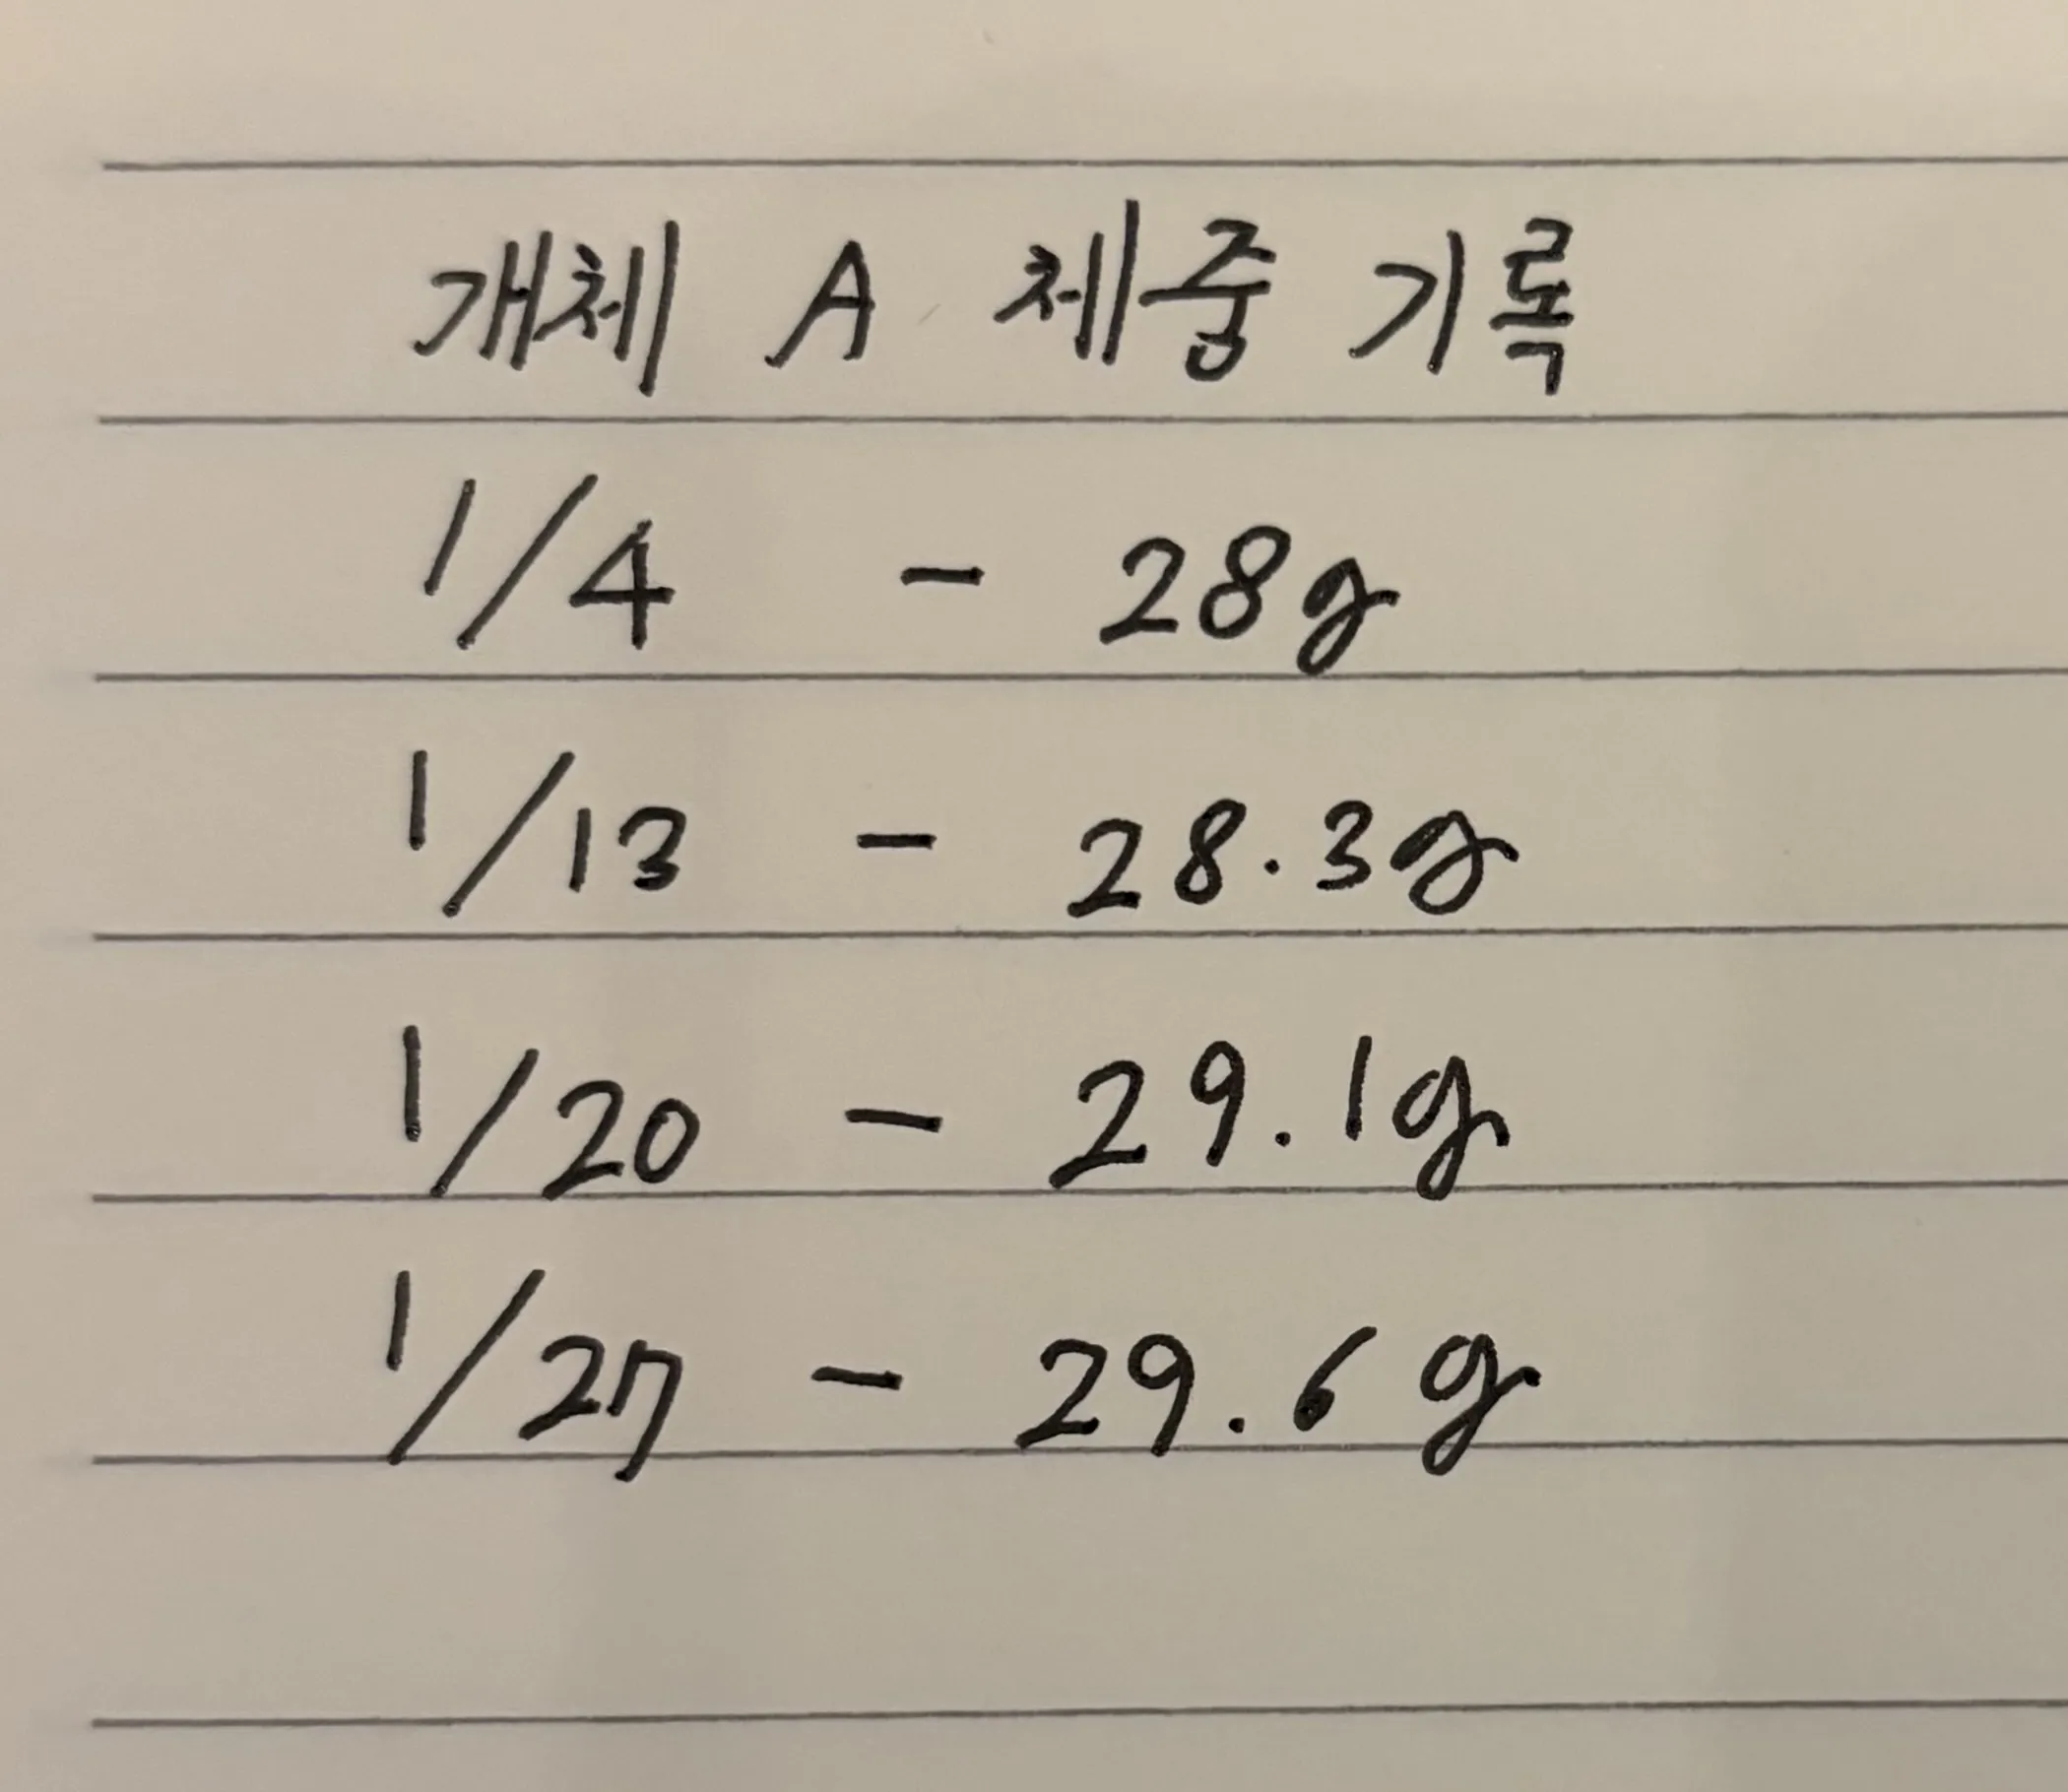 개체 A 체중 기록
1/4 - 28g
1/13 - 28.3g
1/20 - 29.1g
1/27 - 29.6g